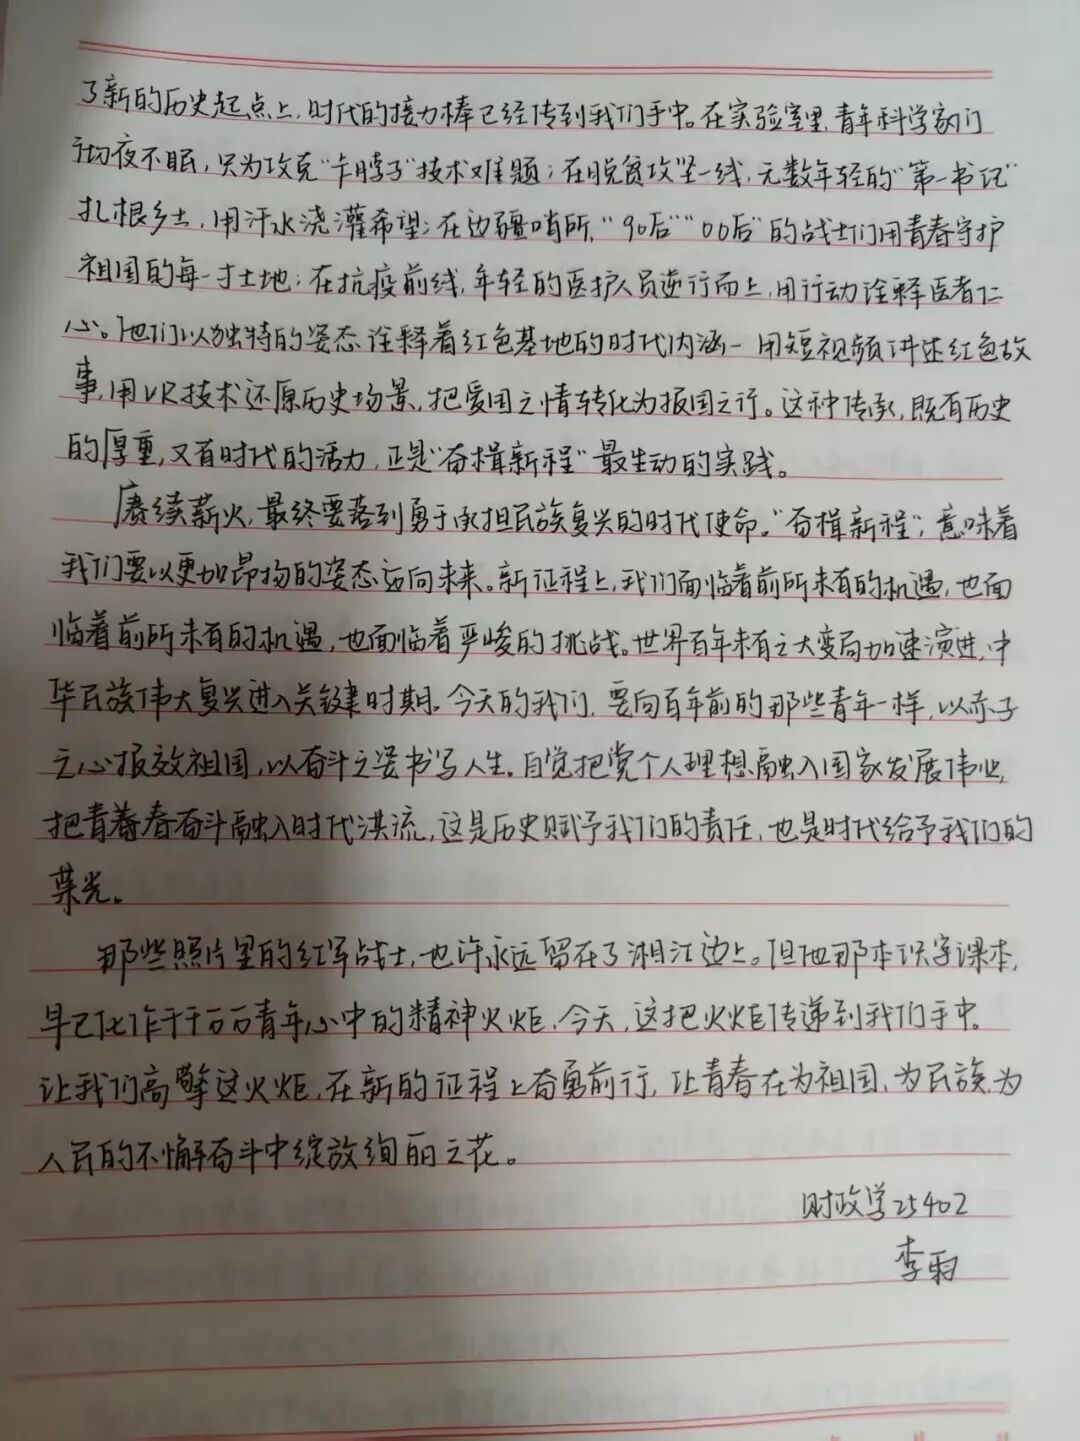 了新的历史起点上,时代的接力棒已经传到我们手中。在实验室里,青年科学家们
彻夜不眠,只为攻克“卡脖子”技术难题;在脱贫攻坚一线,无数年轻的“第一书记”
扎根乡土,用汗水浇灌希望;在边疆哨所,“90后”“00后”的战士们用青春守护
祖国的每一寸土地;在抗疫前线,年轻的医护人员逆行而上,用行动诠释医者仁
心。他们以独特的姿态诠释着红色基地的时代内涵一用短视频讲述红色故
事,用VR技术还原历史场景,把爱国之情转化为报国之行。这种传承,既有历史
的厚重,又有时代的活力,正是“奋楫新程”最生动的实践。
赓续薪火,最终要落到勇于承担民族复兴的时代使命。“奋楫新程”,意味着
我们要以更加昂扬的姿态迈向未来。新征程上,我们面临着前所未有的机遇,也面
临着前所未有的机遇,也面临着严峻的挑战。世界百年未有之大变局加速演进,中
华民族伟大复兴进入关键时期。今天的我们,要向百年前的那些青年一样,以赤子
之心报效祖国,以奋斗之姿书写人生。自觉把党个人理想融入国家发展伟业,
把青春奋斗融入时代洪流,这是历史赋予我们的责任,也是时代给予我们的
荣光。
那些照片里的红军战士,也许永远留在了湘江边上。但他那本识字课本,
早已化作千千万万青年心中的精神火炬,今天,这把火炬传递到我们手中。
让我们高擎这火炬,在新的征程上奋勇前行,让青春在为祖国,为民族,为
人民的不懈奋斗中绽放绚丽之花。
财政学25402
李雨